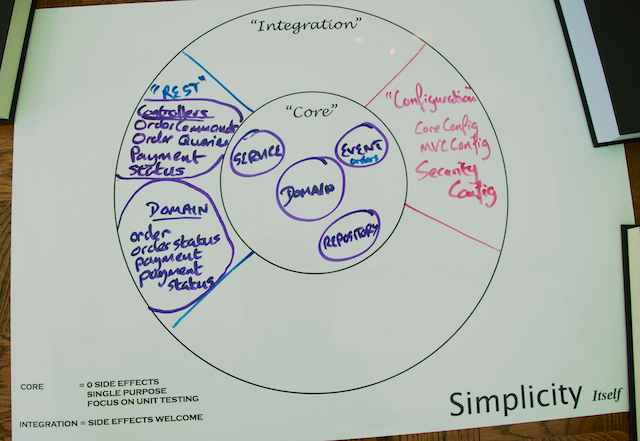 "Integration"
"REST"
Controllers
Order Commands
Order Queries
Payment
Status
DOMAIN
order
order status
payment
payment
status
"Core"
SERVICE
EVENT
orders
DOMAIN
REPOSITORY
"Configuration"
Core Config
MVC Config
Security
Config
CORE = 0 SIDE EFFECTS
SINGLE PURPOSE
FOCUS ON UNIT TESTING
INTEGRATION = SIDE EFFECTS WELCOME
Simplicity Itself